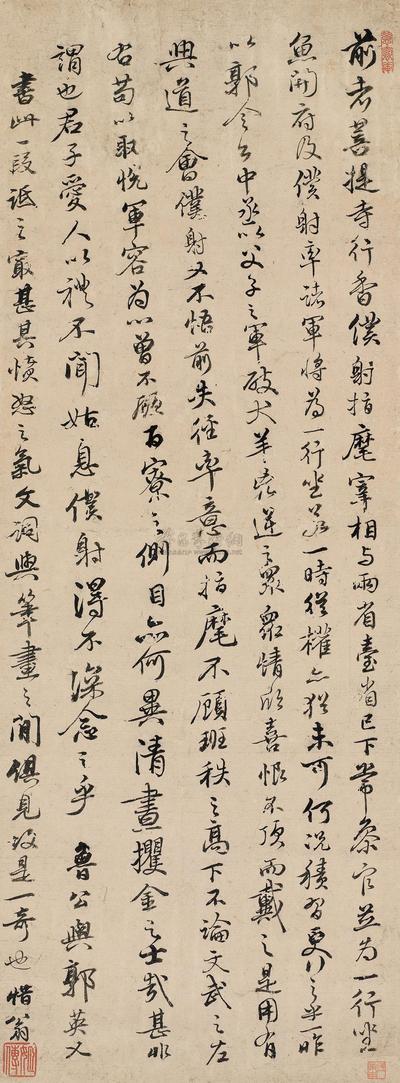 前者菩提寺行香僕射指麾宰相与兩省臺省已下常參官並為一行坐
魚開府及僕射率諸軍將為一行坐若一時從權亦猶未可何況積習更行之乎一昨
以郭令公中丞以父子之軍破犬羊凶逆之眾眾情欣喜恨不頂而戴之是用有
興道之會僕射又不悟前失徑率意而指麾不顧班秩之高下不論文武之左
右苟以取悅軍容為心曾不顧百寮之側目亦何異清晝攫金之士哉甚非
謂也君子愛人以禮不聞姑息僕射得不深念之乎 魯公與郭英乂
書此一段詆之最甚其憤怒之氣文詞與筆畫之間俱見故是一奇也 惜翁